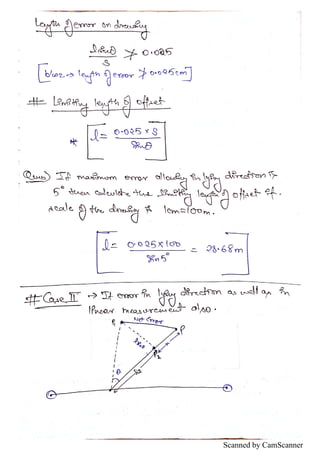 Length of error on drawing
lsinθ / S ≯ 0.025
[ b'coz → length of error ≯ 0.025cm ]
# Limiting length of offset
* l = 0.025 × S / Sinθ
Ques) If maximum error allowing in lying direction is
5° then calculate the limiting length of offset if.
scale of the drawing is 1cm=100m.
l = 0.025×100 / Sin5° = 28.68m
# Case II → If error in lying direction as well as in
linear measurement also.
P1 No error P
P2
θ
Scanned by CamScanner